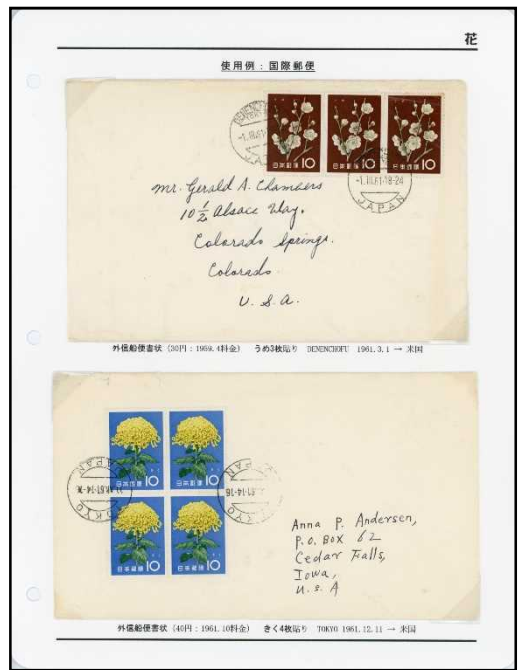 花
使用例：国際郵便
日本郵便 10
日本郵便 10
日本郵便 10
JAPAN
-1.III.61.18-24
JAPAN
Mr. Gerald A. Chambers
10 1/2 Alsace Way.
Colorado Springs.
Colorado.
U. S. A.
外信船便書状 (30円：1959.4料金) うめ3枚貼り DENENCHOFU 1961.3.1 → 米国
日本郵便 10
日本郵便 10
日本郵便 10
日本郵便 10
JAPAN
TOKYO
JAPAN
TOKYO
Anna P. Andersen,
P.O. BOX 62
Cedar Falls,
Iowa,
U.S.A
外信船便書状 (40円：1961.10料金) きく4枚貼り TOKYO 1961.12.11 → 米国